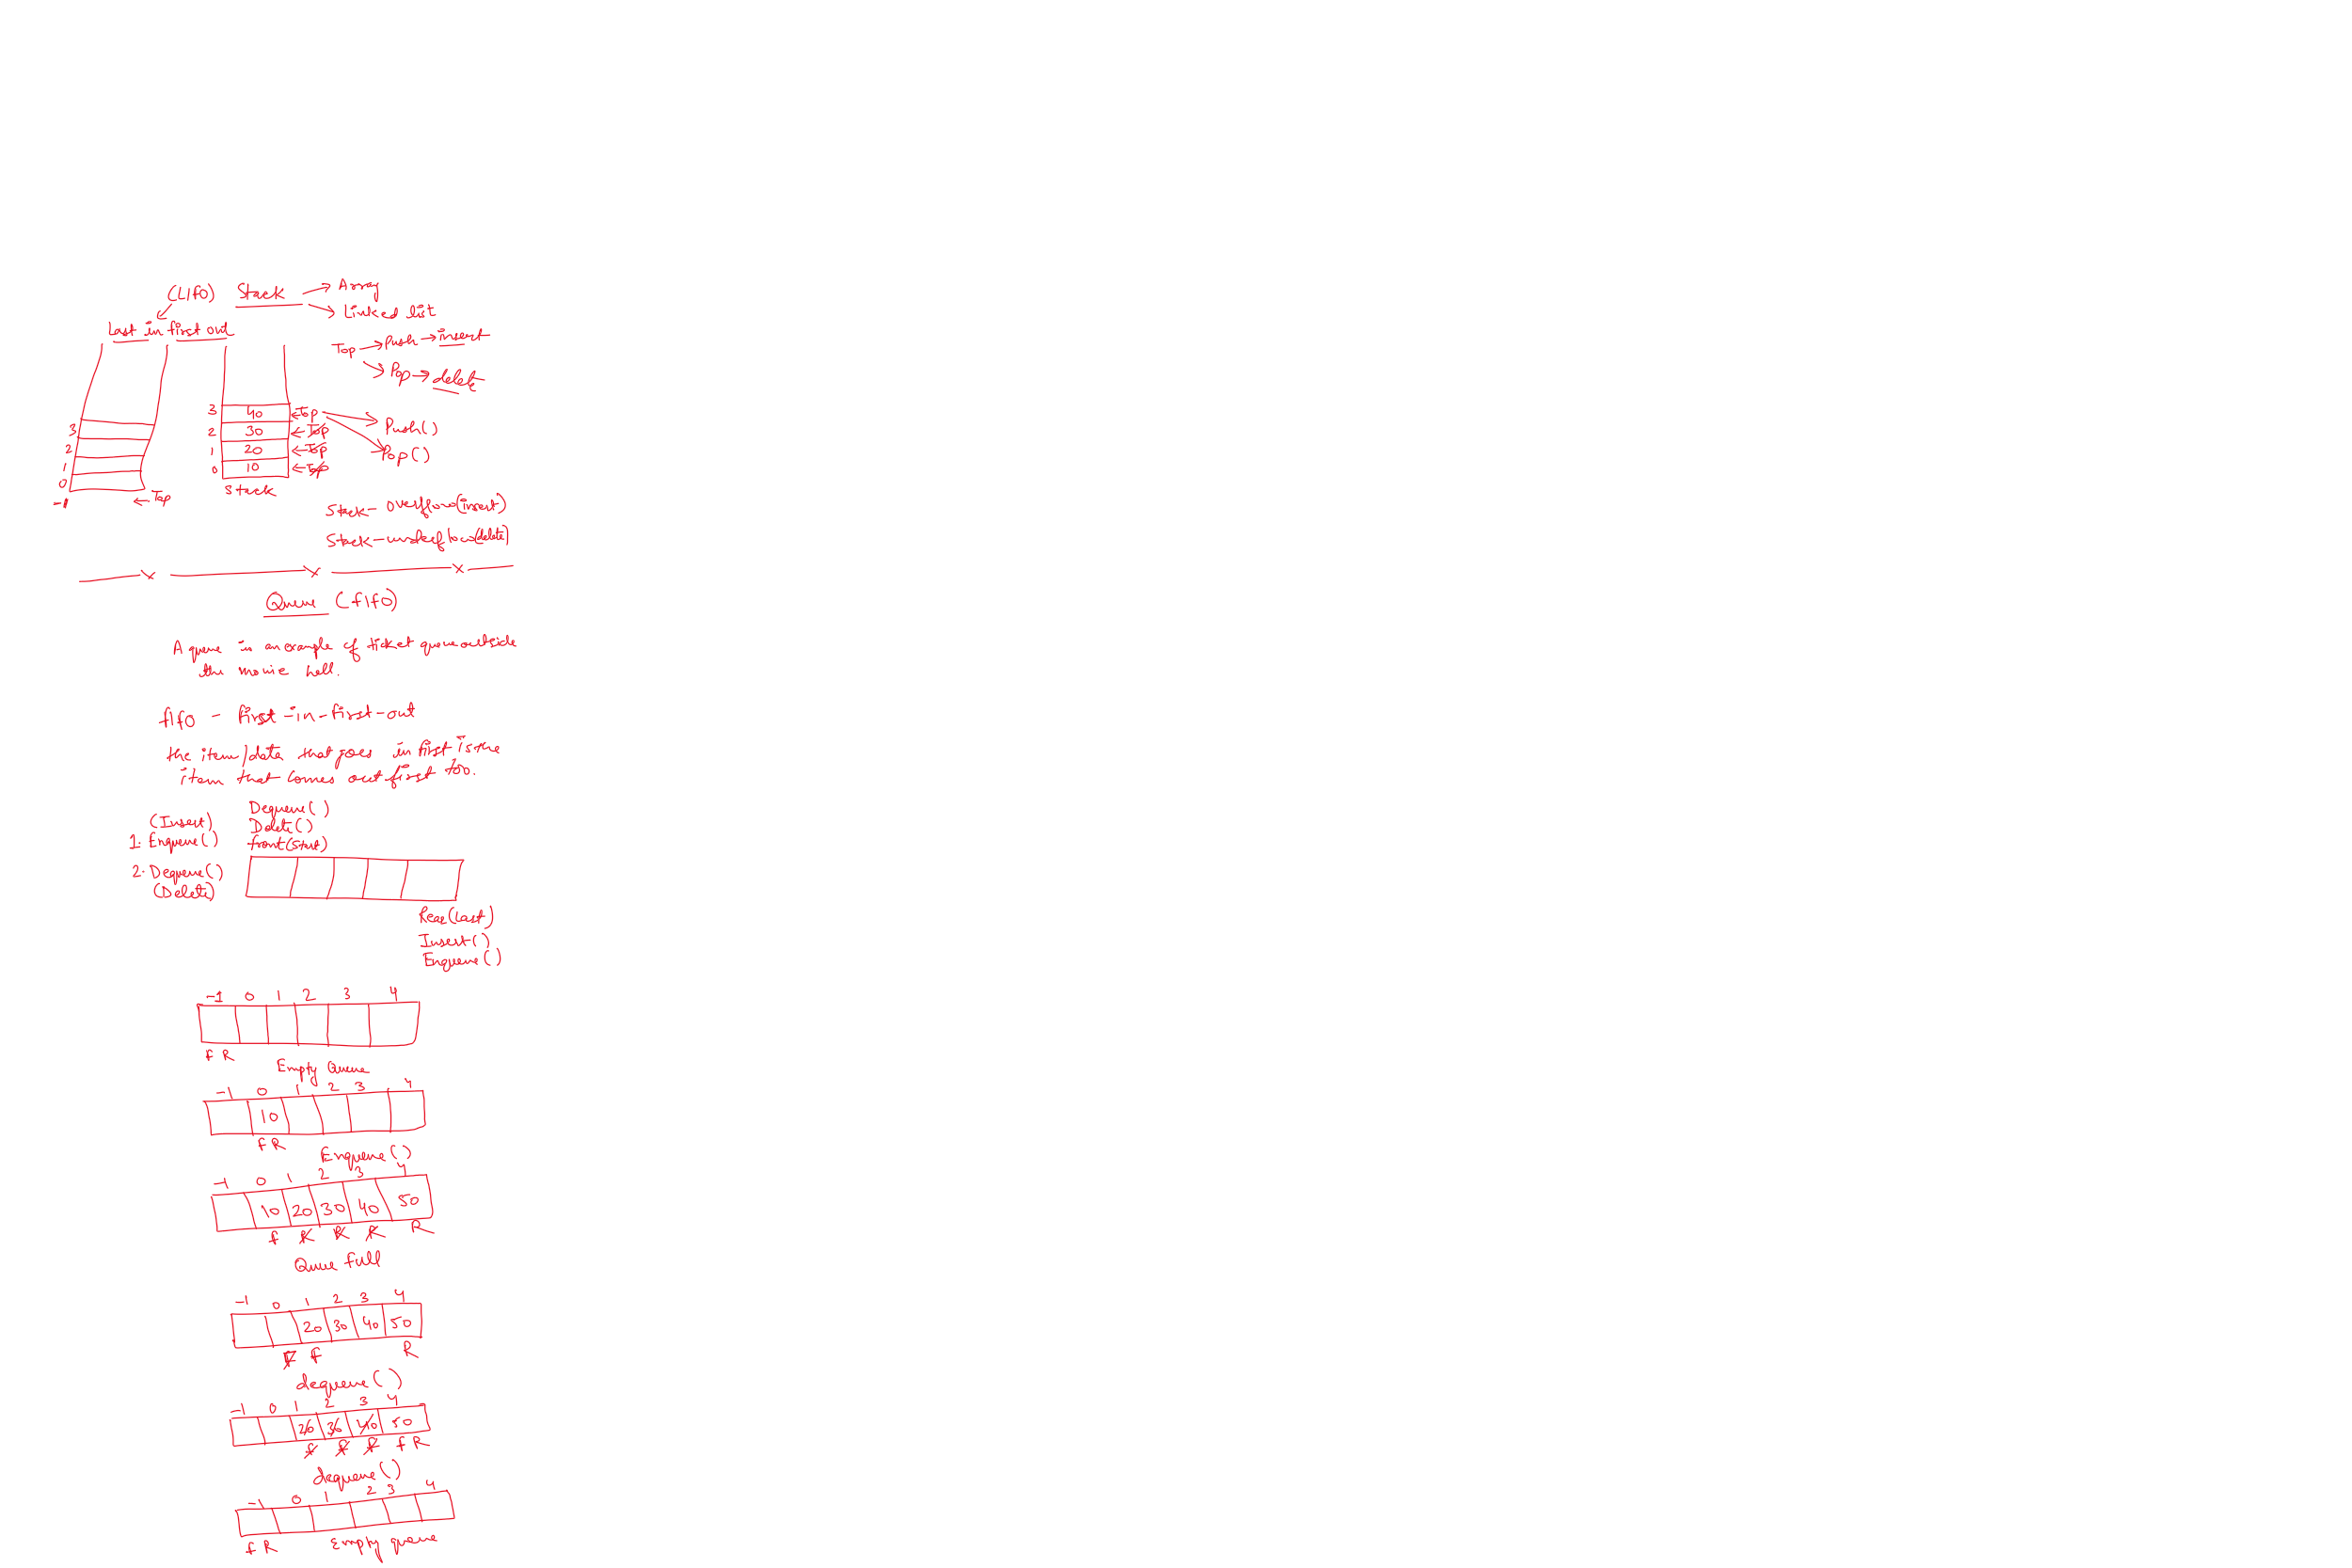 (LIFO) Stack → Array
→ Linked list
Last in first out
Top → Push → insert
→ Pop → delete
3 40 ← Top
Push()
3
2 30 ← Top
2
1 20 ← Top
Pop()
1
0 10 ← Top
0
-1 ← Top
Stack
Stack - Overflow(insert)
Stack - underflow(delete)
Queue (FIFO)
A queue is an example of ticket queue outside
the movie hall.
FIFO - first-in-first-out
the item/data that goes in first is the
item that comes out first too.
Dequeue()
(Insert) Delete()
1. Enqueue() front(start)
2. Dequeue()
(Delete)
Rear(last)
Insert()
Enqueue()
-1 0 1 2 3 4
f R
Empty Queue
-1 0 1 2 3 4
10
f R
Enqueue()
-1 0 1 2 3 4
10 20 30 40 50
f R R R R
Queue full
-1 0 1 2 3 4
20 30 40 50
f f R
dequeue()
-1 0 1 2 3 4
20 30 40 50
f f f f R
dequeue()
-1 0 1 2 3 4
f R Empty queue